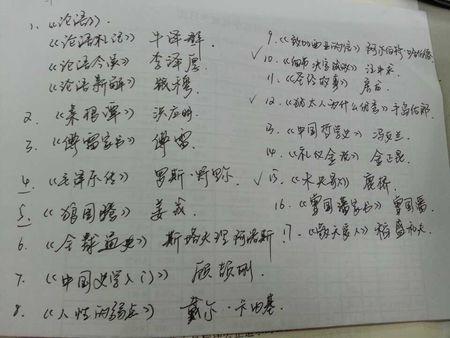 1. 《论语》.
《论语札记》 牛泽群
《论语今读》 李泽厚
《论语新解》 钱穆
2. 《菜根谭》 洪应明
3. 《傅雷家书》 傅雷
4. 《毛泽东传》 罗斯·特里尔
5. 《狼图腾》 姜戎
6. 《全球通史》 斯塔夫里阿诺斯
7. 《中国史学入门》 顾颉刚.
8. 《人性的弱点》 戴尔·卡内基.
9. 《致加西亚的信》 阿尔伯特·哈伯德
✓10. 《细节决定成败》 汪中求
11. 《圣经的故事》 房龙
✓12. 《犹太人为什么优秀》 手岛佑郎
13. 《中国哲学史》 冯友兰
14. 《礼仪金说》 金正昆
✓15. 《未央歌》 鹿桥
16. 《曾国藩家书》 曾国藩
17. 《敬天爱人》 稻盛和夫